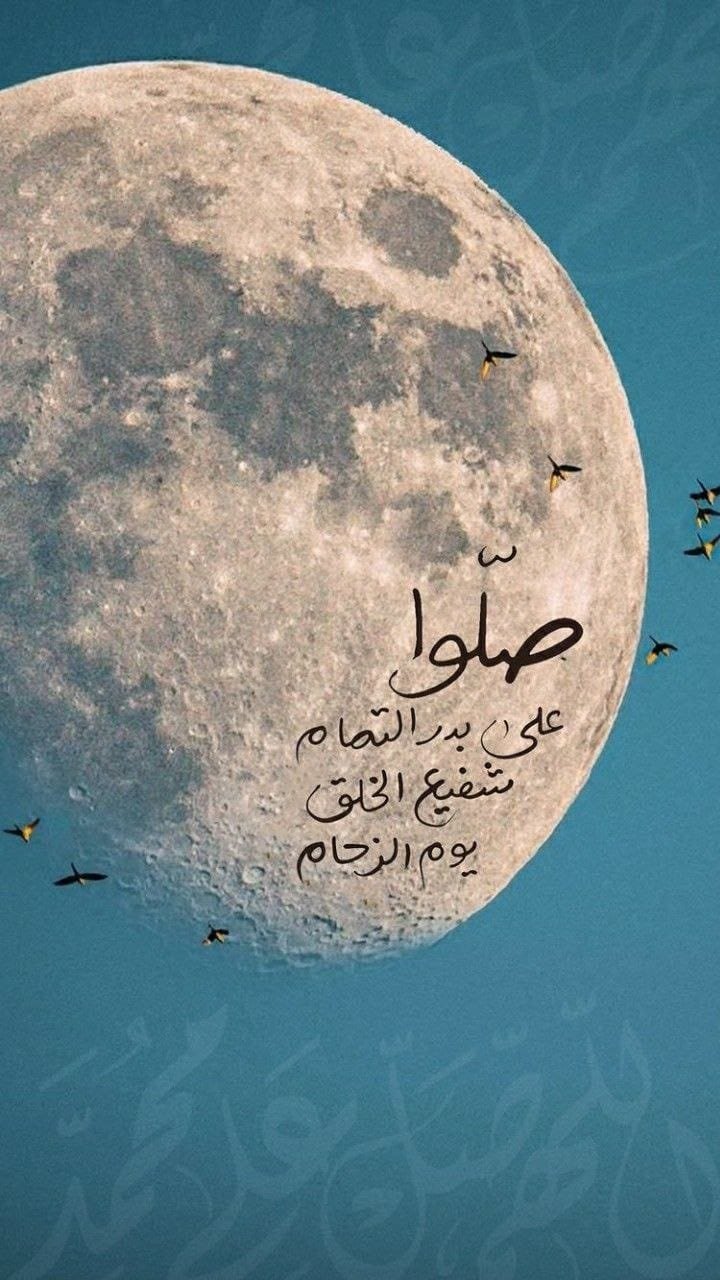 اللهم صل على
صلّوا
على بدر التمام
شفيع الخلق
يوم الزحام
اللّهمّ صلّ على محمّد